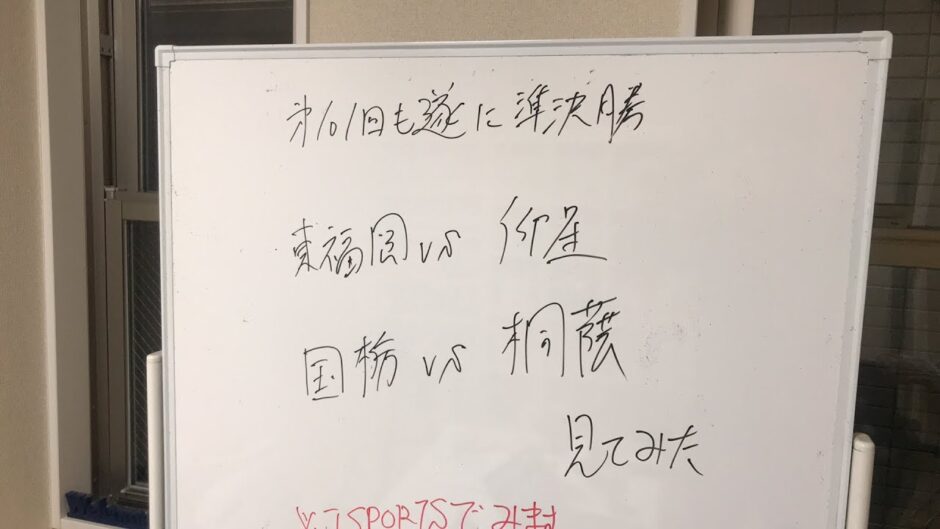 第101回も遂に準決勝
東福岡 vs 仰星
国栃 vs 桐蔭
見てみた
※JSPORTSでみます